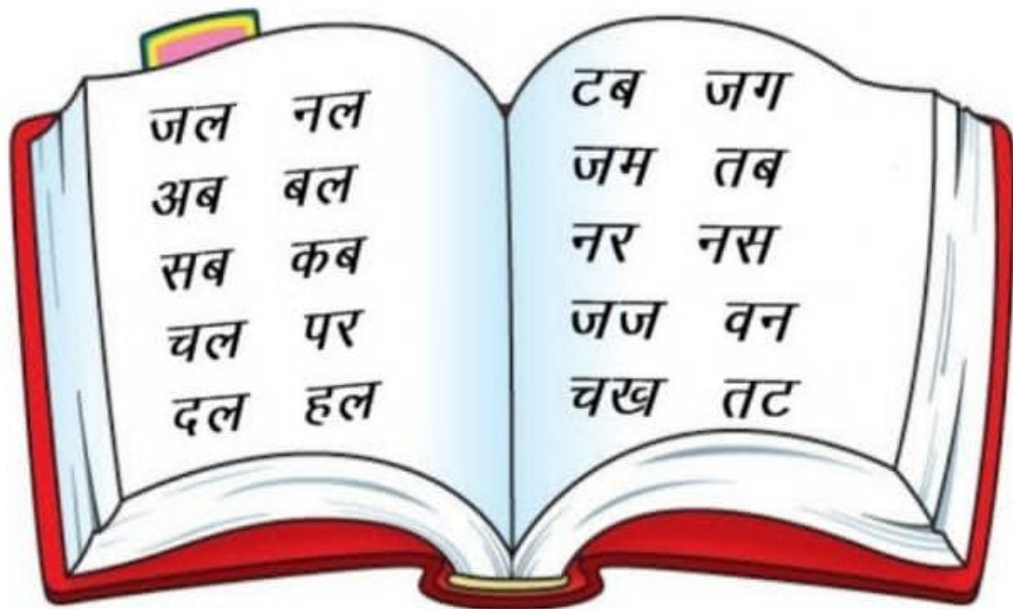 जल नल
अब बल
सब कब
चल पर
दल हल
टब जग
जम तब
नर नस
जज वन
चख तट